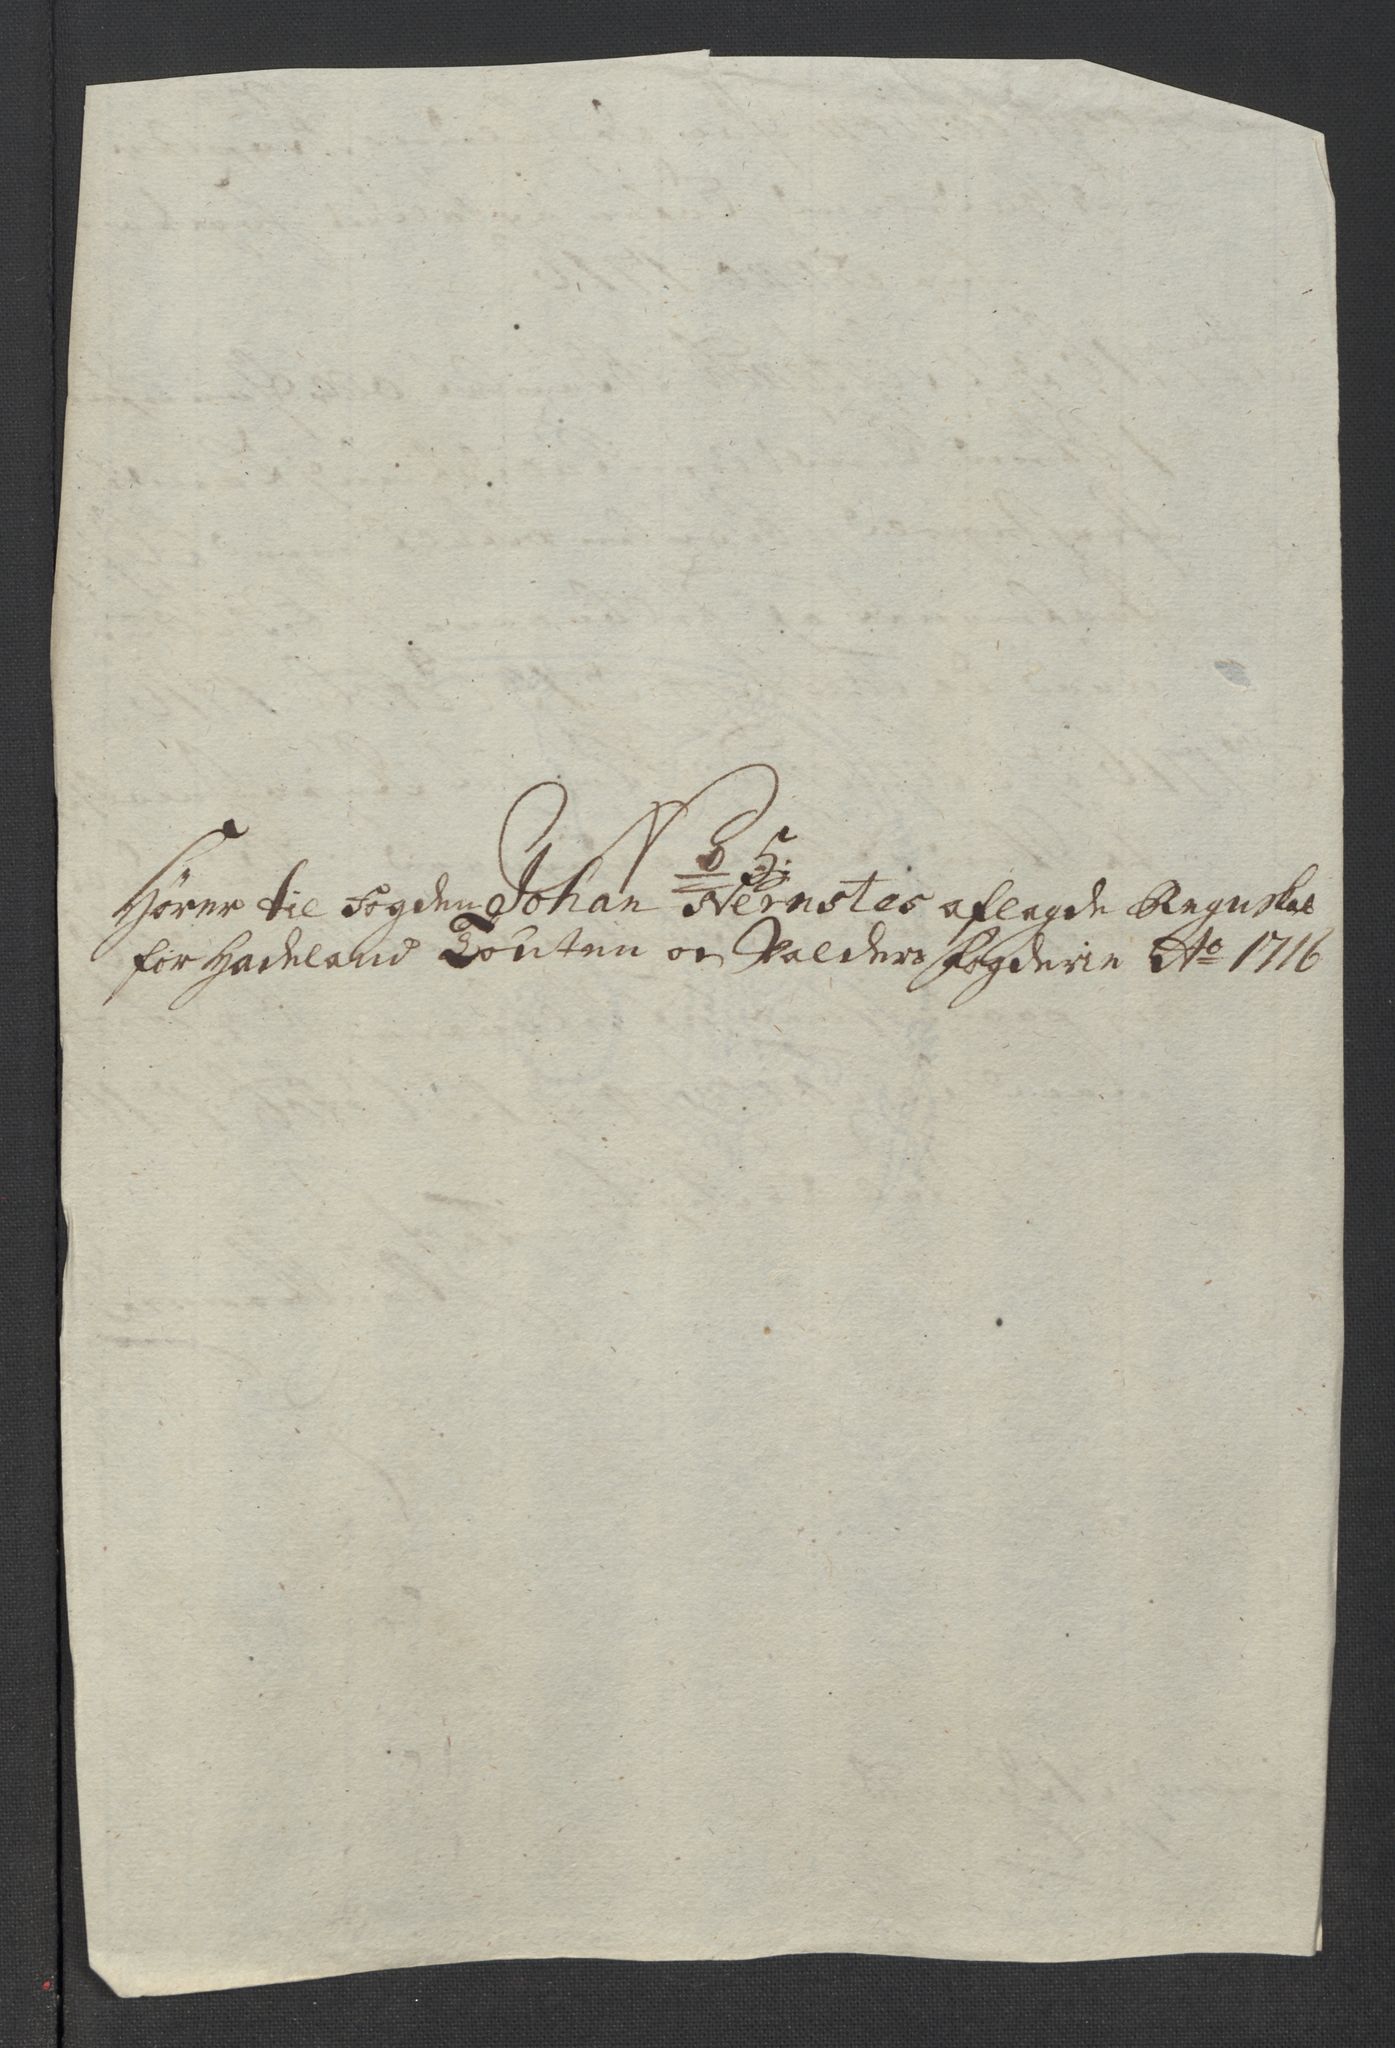 No 5:
Hører til Fogden Johan Nernstes aflagde Regnskab
for Hadeland Touten og Valders Fogderie Ao 1716